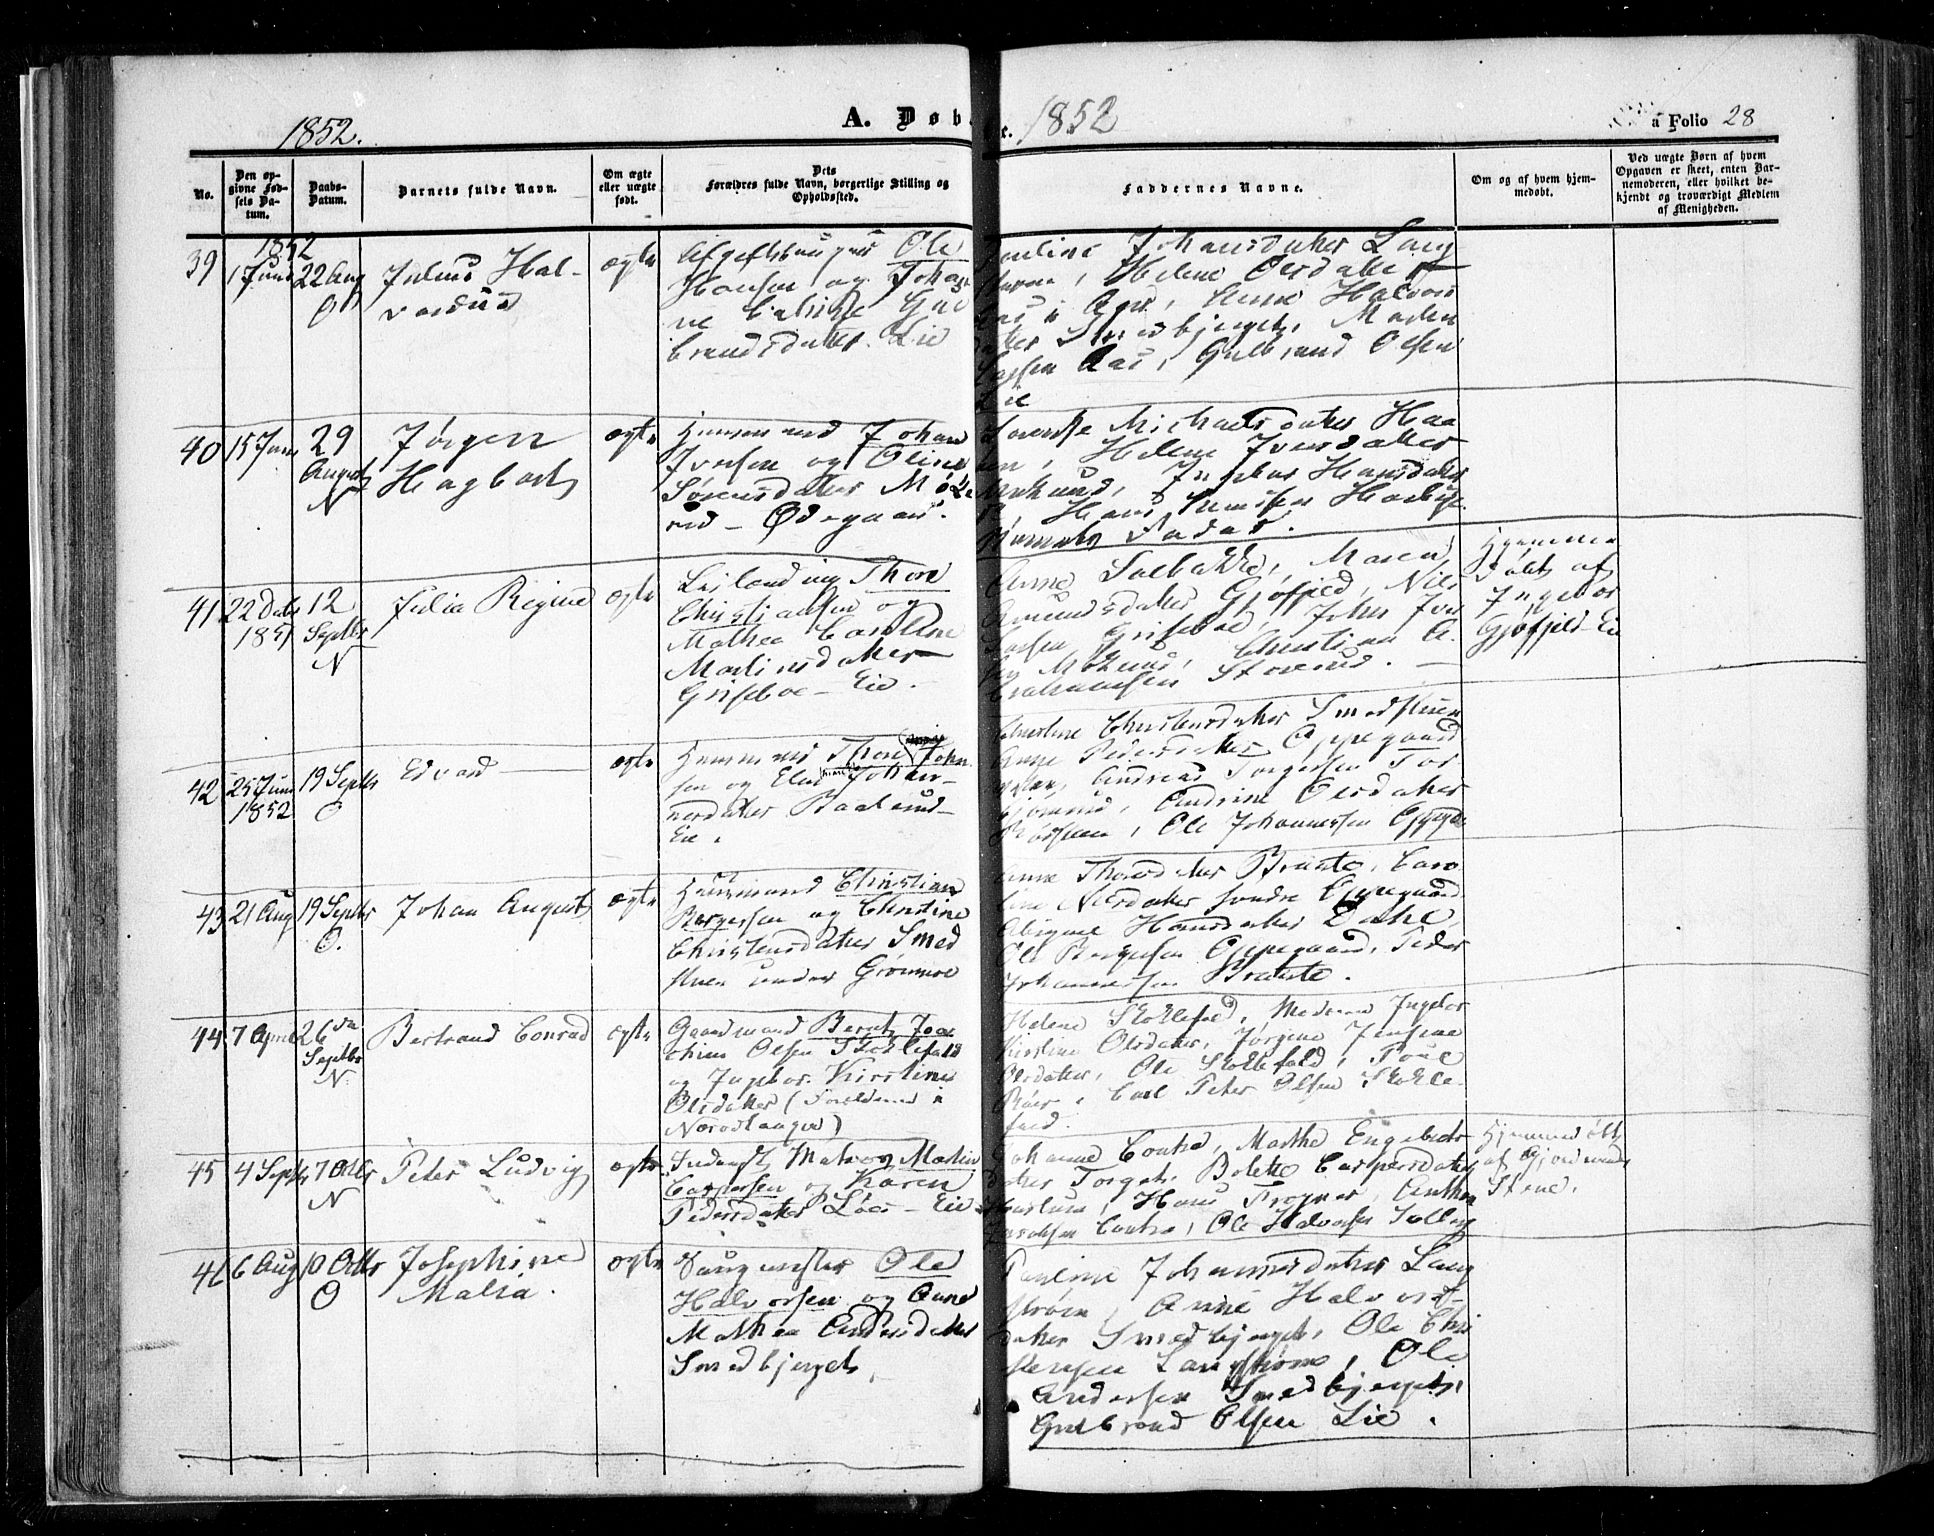 1852.
A. Døb
e. 1852
a Folio 28
No.
Den op-
givne Fød-
sels Da-
tum.
Daabs-
Datum.
Barnets fulde Navn.
Om ægte
eller uægte
født.
Dets
Forældres fulde Navn, borgerlige Stilling og
Opholdssted.
Faddernes Navne.
Om og af hvem hjem-
medøbt.
Ved uægte Børn af hvem
Opgaven er skeet, enten Bar-
nemoderen, eller hvilket be-
kjendt og troværdigt Medlem
af Menigheden.
39
1852
1 Juni
22 Aug
O
Julius Hal-
vardus
ægte
Ole
Hansen og Johan
ne Cathrine Gul
brandsdatter Lie
Pauline Johansdatter Lang
Helene Olsdatter
Aas, Anne Halvors
datter Smedbjerget, Martin
Aas, Gulbrand Olsen
Lie
40
15 Juni
29
August
N
Jørgen
Hagbart
ægte
Huusmand Johan
Iversen og Oline
Sørensdatter Møke
rud - Ødegaard.
Michaelsdatter Haa
Helene Iversdatter
Ingebor Hansdatter
Hans
Barnets Fader.
41
22 Decbr
1851
12
Septbr
N
Julia Regine
ægte
Leilænding Thore
Christiansen og
Mathea Caroline
Martinsdatter
Griseboe - Eie.
Anne Solbakke, Maren
Amundsdatter Gjøfjeld, Nils
Larsen Griseboe, Johan Iver
sen Møkerud, Christian A-
brahamsen Storerud.
Hjemme
døbt af
Ingebor
Gjøfjeld-Eie
42
25 Juni
1852
19 Septbr
O
Edvard
ægte
Huusmand Thore Johan
sen og Elen Johan-
nesdatter Baalerud-
Eie.
Christine Christensdatter Smedstuen
Anne Pedersdatter Oppegaard
Andreas Torgersen Tor
Andrine Olsdatter
Ole Johannessen Oppegaard
43
21 Aug
19 Septbr
O.
Johan August
ægte
Huusmand Christian
Børgersen og Christine
Christensdatter Smed
stuen under Grønmoe
Anne Thorsdatter Braate, Caro
line Nilsdatter søndre Oppegaard
Abigael Hansdatter Dahl
Ole Børgersen Oppegaard, Peder
Johannessen Braate.
44
7 April
26de
Septbr
N.
Bertrand Conrad
ægte
Gaardmand Bernt Joa
chim Olsen Stoklefald
og Ingebor Kirstine
Olsdatter (Forældrene i
Næsodtangen)
Helene Stoklefald, Madame Ingebor
Kirstine Olsdatter, Jørgine Jensine
Olsdatter, Ole Stoklefald, Poul
Røer, Carl Peter Olsen Stokle-
fald.
45
4 Septbr
7 Octbr
N
Peter Ludvig
ægte
Inderst Matros Martin
Caspersen og Karen
Pedersdatter Løes - Eie
Johanne Contra, Marthe Engebrets
datter Torget, Bolette Caspersdatter
Haslum, Hans Frogner, Anthon
Jacobsen Contra, Ole Halvorsen
Hjemmedøbt
af Gjordemoder
Stene.
46
6 Aug
10 Octbr
O
Josephine
Malia.
ægte
Saugmester Ole
Halvorsen og Anne
Mathea Andersdatter
Smedbjerget,
Pauline Johannesdatter Lang
strøm, Anne Halvors-
datter Smedbjerget, Ole Chri
stensen Langstrøm, Ole
Andersen Smedbjerget,
Gulbrand Olsen Lie.